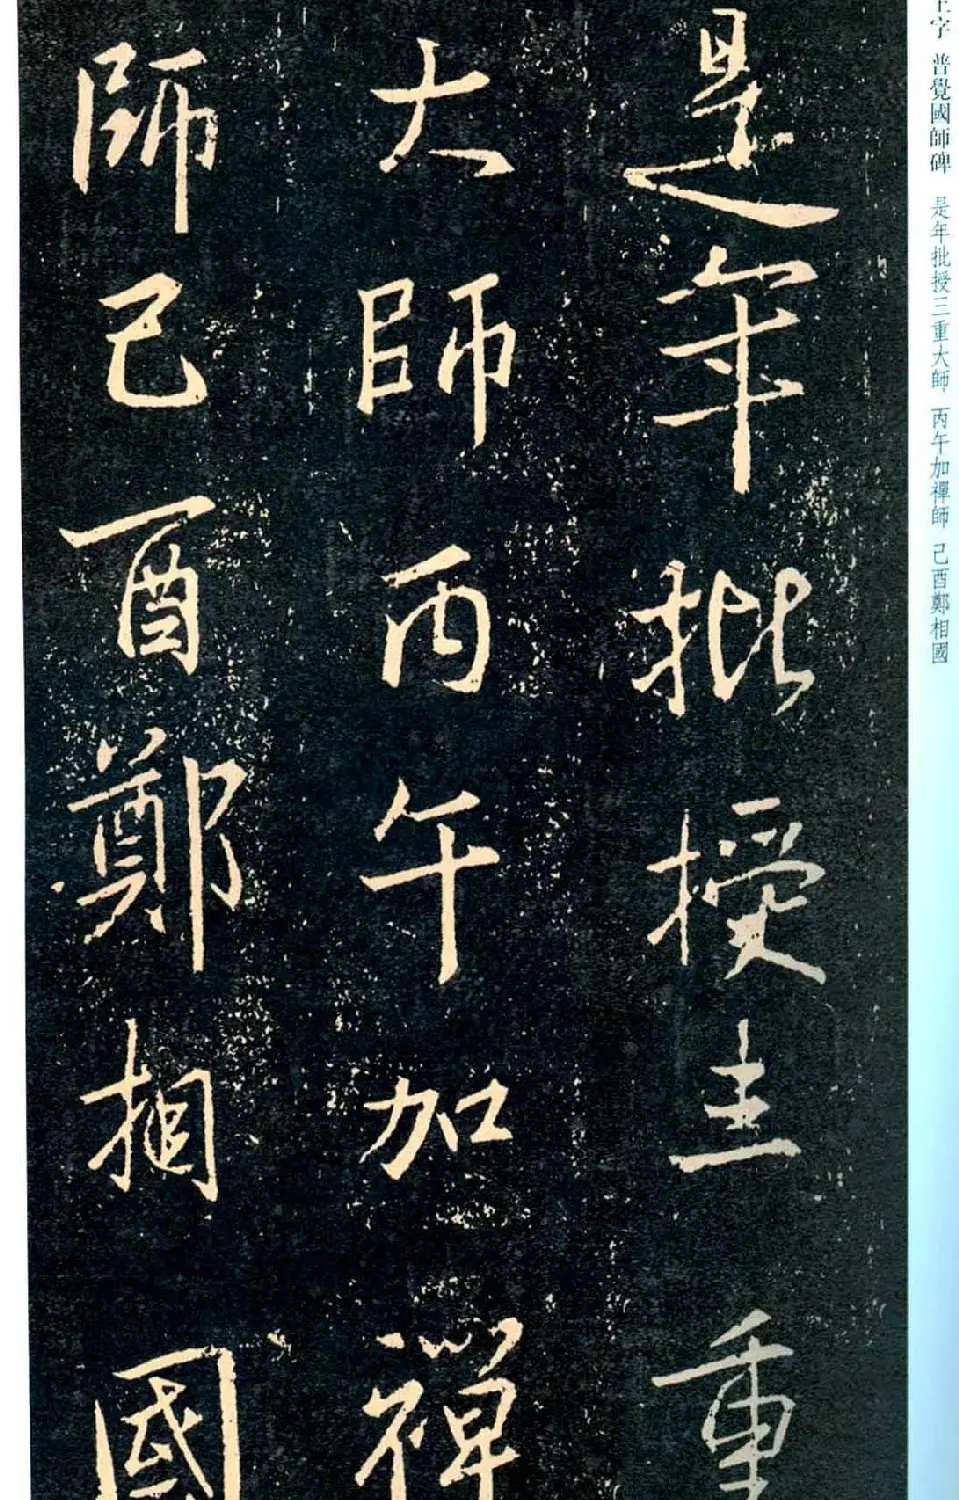 王字 普覺國師碑 是年批授三重大師 丙午加禪師 己酉鄭相國
是年批授三重
大師丙午加禪
師己酉鄭相國